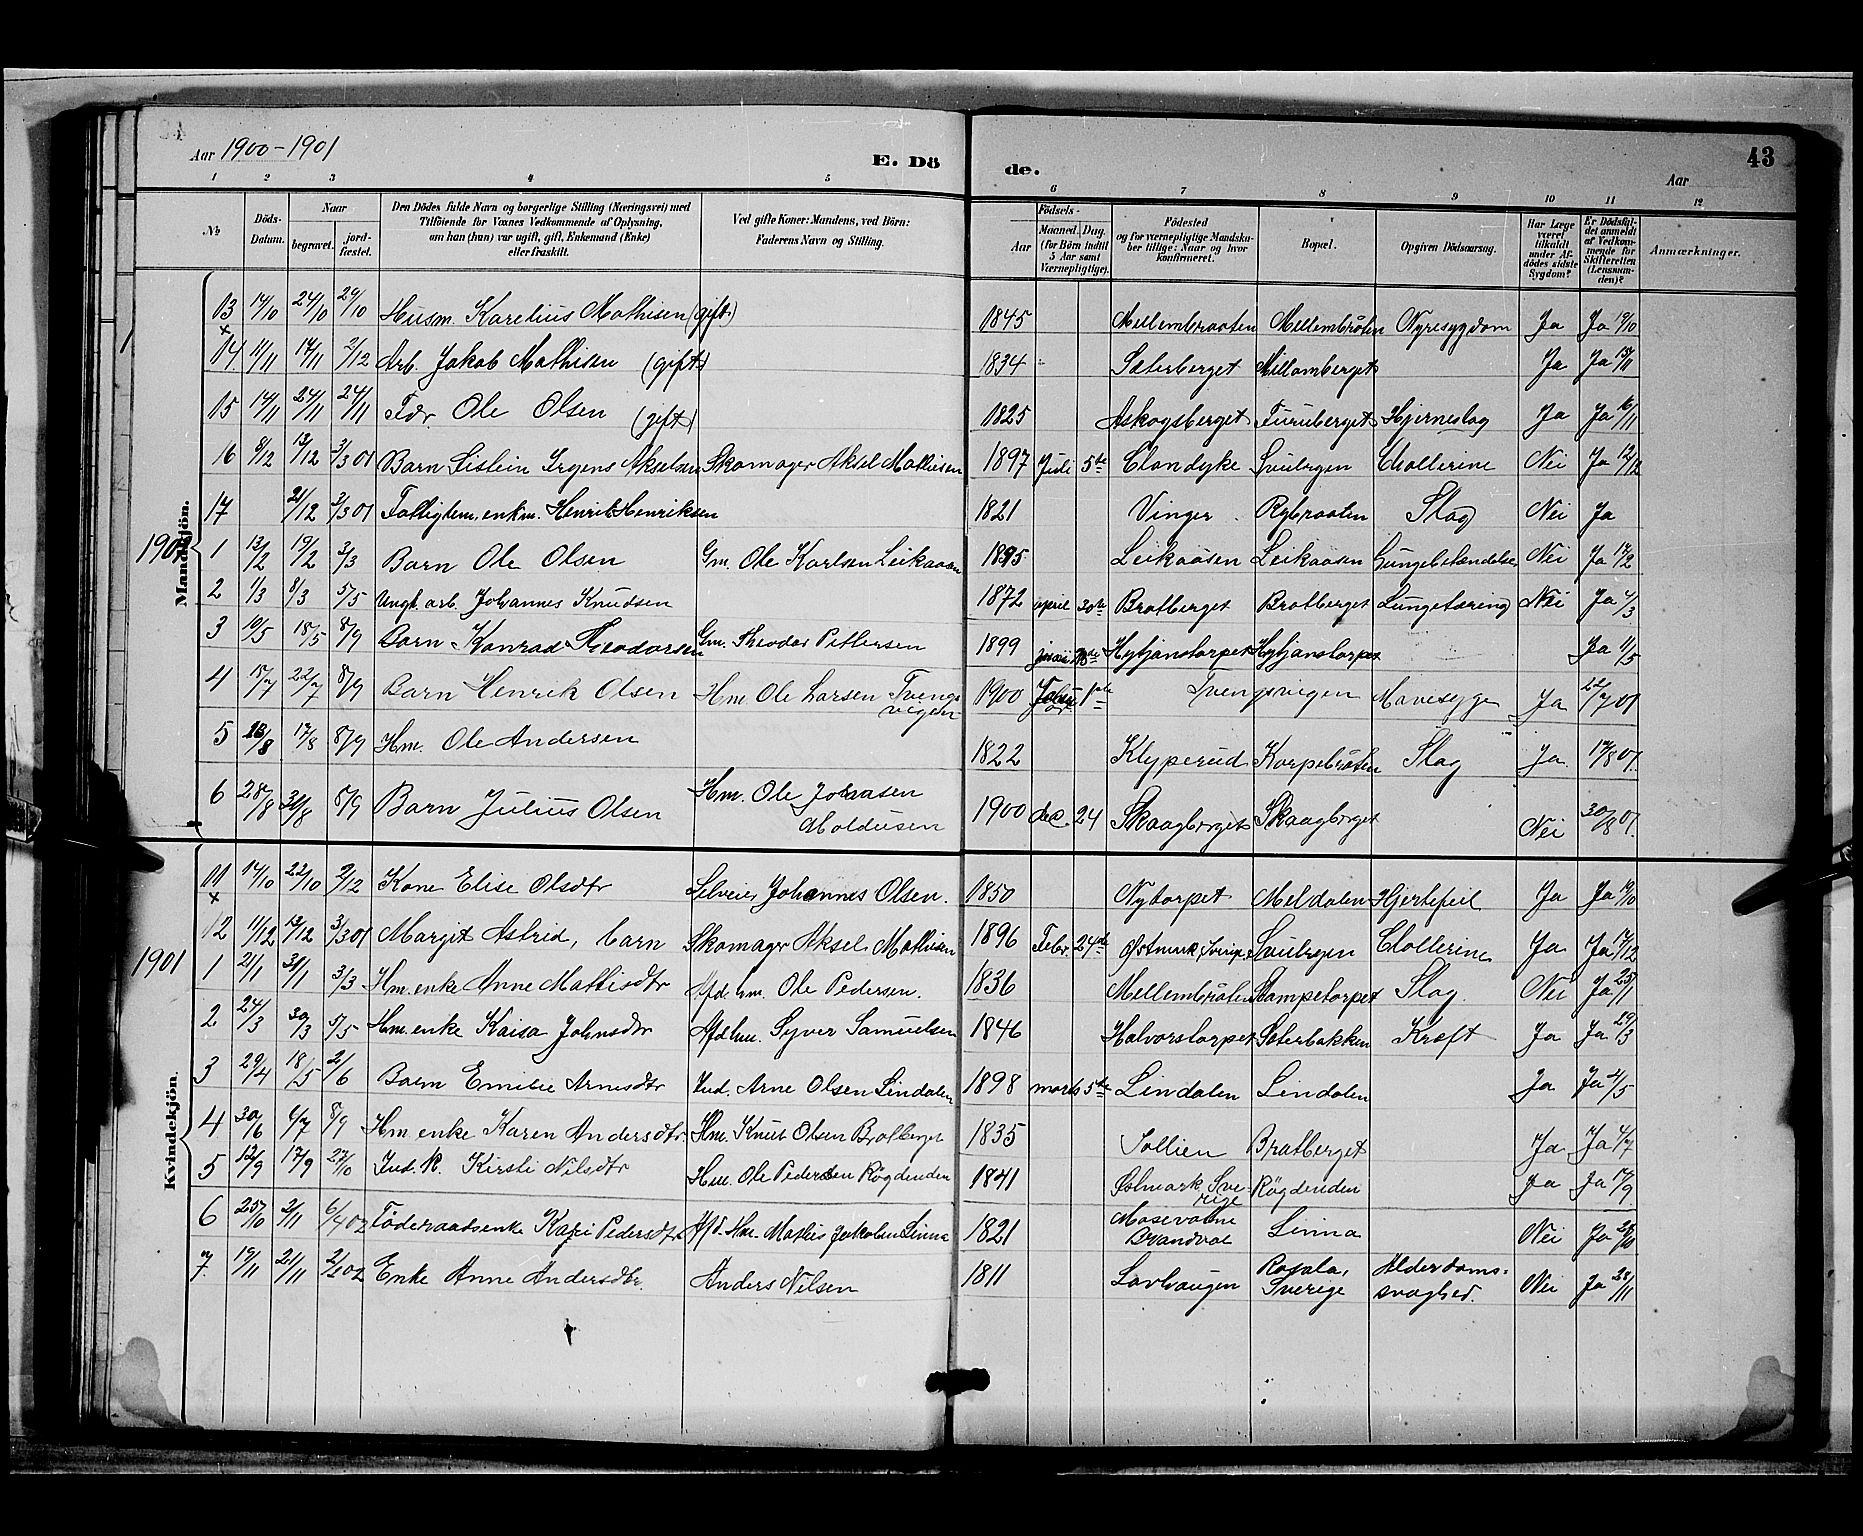 Aar 1900-1901
E. Dö
de.
43
Aar
1 2 3 4 5 6 7 8 9 10 11 12
№
Döds-Datum.
Naar
begravet.
jord-fæstet.
Den Dödes fulde Navn og borgerlige Stilling (Næringsvei) med
Tilföiende for Voxnes Vedkommende af Oplysning,
om han (hun) var ugift, gift, Enkemand (Enke)
eller fraskilt.
Ved gifte Koner: Mandens, ved Börn:
Faderens Navn og Stilling.
Födsels-
Aar
Maaned. Dag.
(for Börn indtil 5 Aar samt Værnepligtige).
Födested
og for værnepligtige Mandskaber tillige: Naar og hvor konfirmeret.
Bopæl.
Opgiven Dödsaarsag.
Har Læge været tilkaldt under Afdödes sidste Sygdom?
Er Dödsfaldet anmeldt af Vedkommende for Skifteretten (Lensmanden)?
Anmærkninger.
Mandkjön.
13 14/10 24/10 29/10 Husm. Karelius Mathisen (gift) 1845 Mellembraaten Mellembråten Nyresygdom Ja Ja 19/10
14 11/11 17/11 2/12 Arb. Jakob Mathisen (gift) 1834 Sæterberget Millomberget Ja Ja 15/11
15 14/11 24/11 24/11 Fdr Ole Olsen (gift) 1825 Askogsberget Furuberget Hjerneslag Ja Ja 16/11
16 9/12 13/12 3/3 01 Barn Eistein Akselsen Skomager Aksel Mathisen 1897 Juli 5te Clondyke Chollerine Nei Ja 12/12
17 21/12 3/3 01 Fattiglem, enkm. Henrik Henriksen 1821 Vinger Rybraaten Slag Nei Ja
1901
1 13/2 19/2 3/3 Barn Ole Olsen Gm. Ole Karlsen Leikaasen 1895 Leikaasen Leikaasen Lungebetændelse Nei Ja 17/2
2 1/3 8/3 5/5 Ungk. arb. Johannes Knudsen 1872 april 30te Bratberget Bratberget Lungetæring Nei Ja 4/3
3 10/5 18/5 8/9 Barn Konrad Theodorsen Gm. Theodor Pettersen 1899 Hytjanstorpet Hytjanstorpet Ja 11/5
4 18/7 22/7 8/9 Barn Henrik Olsen Hm. Ole Larsen Tvengsvigen 1900 1ste Tvengsvigen Mavesyge Ja 22/7 01
5 13/8 17/8 8/9 Hm. Ole Andersen 1822 Klyperud Korpebråten Slag Ja 17/8 01.
6 28/8 31/8 8/9 Barn Julius Olsen Hm. Ole Johansen Moldusen 1900 dec. 24 Skaagberget Skaagberget Nei 30/8 01.
Kvindekjön.
11 14/10 22/10 2/12 Kone Elise Olsdtr Selveier Johannes Olsen. 1850 Nytorpet Meldalen Hjertefeil Ja Ja 19/10
12 11/12 13/12 3/3 01 Margit Astrid, barn Skomager Aksel Mathisen 1896 Febr. 24de Østmark, Sverige Chollerine Ja Ja 17/12
1901
1 21/1 31/1 3/3 Hm. enke Anne Mathisdtr Afd hm. Ole Pedersen. 1836 Mellembråten Stampetorpet Slag. Nei Ja 25/1
2 24/3 30/3 5/5 Hm. enke Kaisa Johnsdtr Afd hm. Syver Samuelsen 1846 Halvorstorpet Sæterbakken Kræft Ja Ja 29/3
3 29/4 18/5 2/6 Barn Emilie Arnesdtr Ind. Arne Olsen Lindalen 1898 marts 5te Lindalen Lindalen Ja Ja 2/5
4 30/6 6/7 8/9 Hm enke Karen Andersdtr. Hm. Knut Olsen Bratberget 1835 Sollien Bratberget Ja Ja 4/7
5 12/9 17/9 27/10 Ind. K. Kirsti Nilsdtr Hm. Ole Pedersen Røgdenden 1841 Østmark Sverige Røgdenden Ja Ja 17/9
6 25/10 2/11 6/4 02 Föderaadsenke Kari Pedersdtr Afd. Hm. Mathis Jakobsen Linna 1821 Brandval Linna Nei Ja 28/10
7. 19/11 21/11 2/2 02 Enke Anne Andersdtr. Anders Nilsen 1811 Lavhaugen Sverige Alderdomssvaghed. Nei Ja 28/11